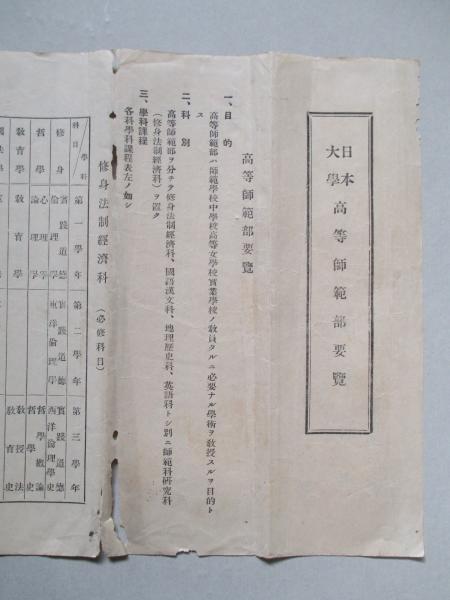 日本大學高等師範部要覽
高等師範部要覽
一、目的
高等師範部ハ師範學校中學校高等女學校實業學校ノ教員タルニ必要ナル學術ヲ教授スルヲ目的ト
ス
二、科別
高等師範部ヲ分チテ修身法制經濟科、國語漢文科、地理歷史科、英語科トシ別ニ師範科研究科
(修身法制經濟科)ヲ置ク
三、學科課程
各科學科課程表左ノ如シ
修身法制經濟科(必修科目)
學科 科目 第一學年 第二學年 第三學年
修身 實踐道德 倫理學 實踐道德 東洋倫理學 實踐道德 西洋倫理學史
哲學 心理學 論理學 哲學概論 哲學史
教育學 教育學 教授法 教育史